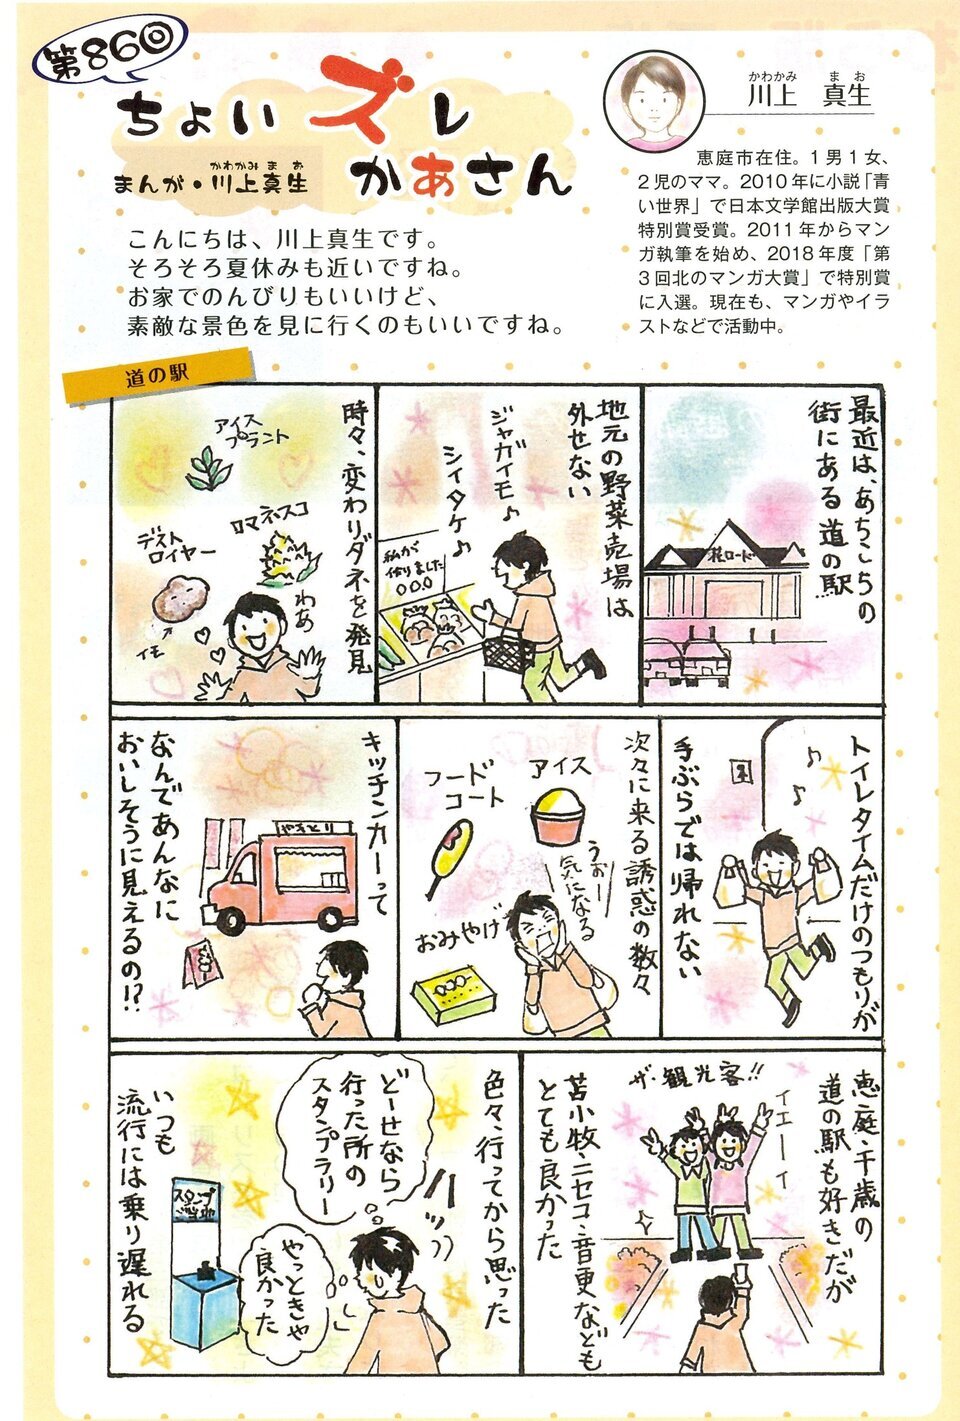 第86回
ちょいズレ
かあさん
かわかみ まお
まんが・川上真生
かわかみ まお
川上 真生
恵庭市在住。1男1女、
2児のママ。2010年に小説「青
い世界」で日本文学館出版大賞
特別賞受賞。2011年からマン
ガ執筆を始め、2018年度「第
3回北のマンガ大賞」で特別賞
に入選。現在も、マンガやイラ
ストなどで活動中。
こんにちは、川上真生です。
そろそろ夏休みも近いですね。
お家でのんびりもいいけど、
素敵な景色を見に行くのもいいですね。
道の駅
最近は、あちこちの
街にある道の駅
花ロード
地元の野菜売場は
外せない
ジャガイモ♪
シイタケ♪
私が
作りました
○○○
時々、変わりダネを発見
アイス
プラント
ロマネスコ
デスト
ロイヤー
イモ
わあ
トイレタイムだけのつもりが
手ぶらでは帰れない
次々に来る誘惑の数々
アイス
フード
コート
うぉー
気になる
おみやげ
キッチンカーって
なんであんなに
おいしそうに見えるの!?
やきとり
恵庭・千歳の
道の駅も好きだが
イエーイ
ザ・観光客!!
苫小牧・ニセコ・音更なども
とても良かった
色々、行ってから思った
どーせなら
行った所の
スタンプラリー
やっときゃ
良かった
スタンプ
いつも
流行には乗り遅れる